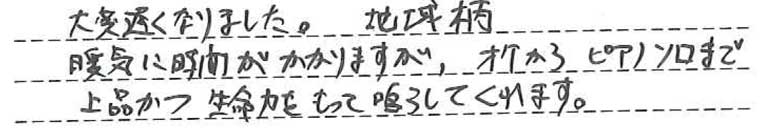 大変遅くなりました。 地域柄
暖気に時間がかかりますが、オケから ピアノソロまで
上品かつ 生命力をもって鳴らしてくれます。